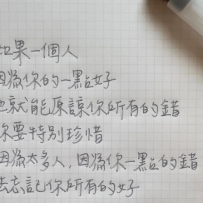 如果一個人
因為你的一點好
也就能原諒你所有的錯
你要特別珍惜
因為太多人,因為你一點的錯
去忘記你所有的好